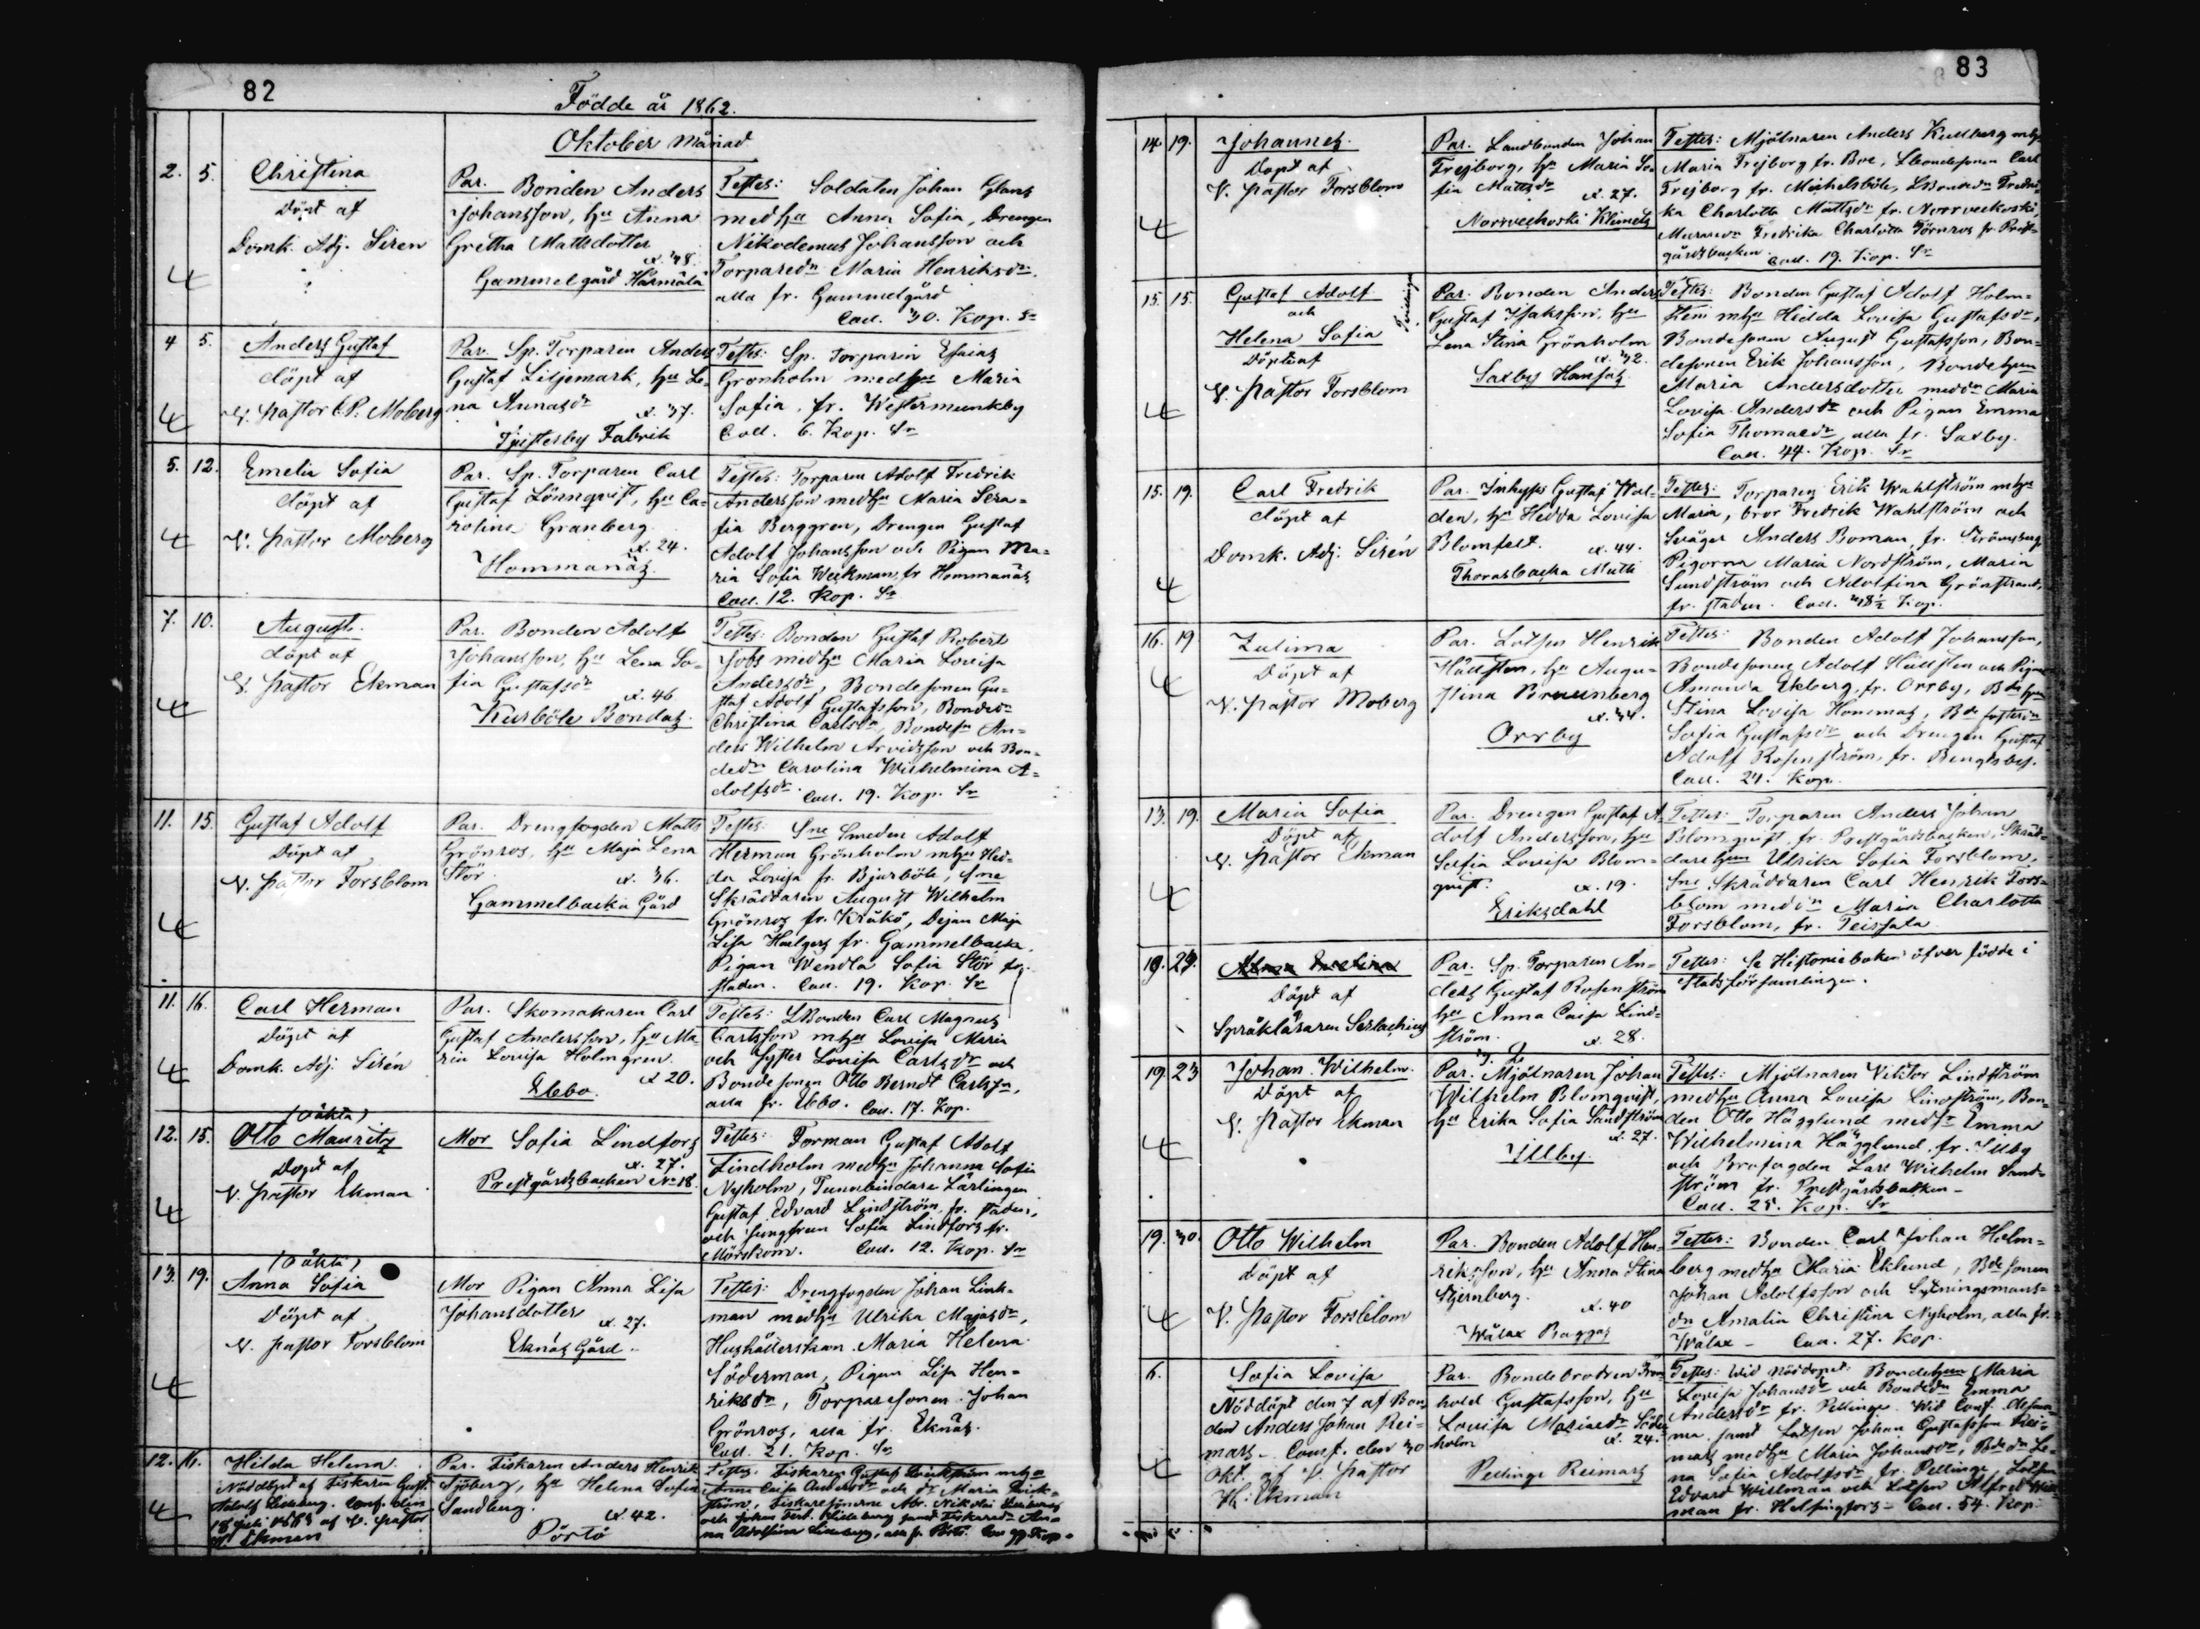 82
Födde år 1862.
Oktober Månad
2. 5.
Christina
Döpt af
Domk. Adj. Sirén
Par. Bonden Anders
Johansson, hu Anna
Gretha Mattsdotter
Gammelgård Härmälä
Testes: Soldaten Johan Glans
med hu Anna Sofia, Drengen
Nikodemus Johansson och
Torparedn Maria Henriksdr.
alla fr. Gammelgård
Coll. 30. Kop. Sr
4 5.
Anders Gustaf
döpt af
V. Pastor C.P. Moberg
Par. Sp. Torparen Anders
Gustaf Liljemark, hu Le-
na Annasdr
æ. 37.
Tjusterby Fabrik
Testes: Sp. Torparen Esaias
Grönholm med hu Maria
Sofia, fr. Westermunkby
Coll. 6. Kop. Sr
5. 12.
Emelia Sofia
döpt af
V. Pastor Moberg
Par. Sp. Torparen Carl
Gustaf Lönnqvist, hu Ca-
rolina Granberg.
æ. 24.
Hommanäs.
Testes: Torparen Adolf Fredrik
Andersson med hu Maria Sera-
fia Berggren, Drengen Gustaf
Adolf Johansson och Pigan Ma-
ria Sofia Weckman, fr Hommanäs
Coll. 12. Kop. Sr
7. 10.
August.
döpt af
V. Pastor Ekman
Par. Bonden Adolf
Johansson, hu Lena So-
fia Gustafsdr
æ. 46
Kurböle Bondas.
Testes: Bonden Gustaf Robert
Jobs med hu Maria Lovisa
Andersdr, Bondesonen Gu-
staf Adolf Gustafsson, Bondedr
Christina Carlsdr, Bondesn An-
ders Wilhelm Arvidsson och Bon-
dedn Carolina Wilhelmina A-
dolfsdr. Coll. 19. Kop. Sr
11. 15.
Gustaf Adolf
Döpt af
V. Pastor Forsblom
Par. Drengfogden Matts
Grönros, hu Maja Lena
Stör. æ. 36.
Gammelbacka Gård
Testes: Sne Smeden Adolf
Herman Grönholm m hu Hed-
da Lovisa fr. Bjurböle, Sne
Skräddaren August Wilhelm
Grönros fr. Kråkö, Dejan Maja
Lisa fr. Gammelbacka,
Pigan Wendla Sofia Stör fr.
staden. Coll. 19. Kop. Sr
11. 16.
Carl Herman
Döpt af
Domk. Adj. Sirén
Par. Skomakaren Carl
Gustaf Andersson, hu Ma-
ria Lovisa Holmgren.
æ 20.
Ebbo.
Testes: LBonden Carl Magnus
Carlsson m hu Lovisa Maria
och syster Lovisa Carlsdr och
Bondesonen Otto Berndt Carlssn,
alla fr. Ebbo. Coll. 17. Kop.
(Oäkta)
12. 15.
Otto Mauritz
Döpt af
V. Pastor Ekman
Mor Sofia Lindfors
æ. 27.
Prestgårdsbacken No 18.
Testes: Forman Gustaf Adolf
Lindholm med hu Johanna Sofia
Nyholm, Tunnbindare Lärlingen
Gustaf Edvard Lindström, fr. staden,
och Jungfrun Sofia Lindfors fr.
Mörskom. Coll. 12. Kop. Sr
(Oäkta)
13. 19.
Anna Sofia
Döpt af
V. Pastor Forsblom
Mor Pigan Anna Lisa
Johansdotter æ. 27.
Eknäs Gård.
Testes: Drengfogden Johan Link-
man med hu Ulrika Majasdr,
Hushållerskan Maria Helena
Söderman, Pigan Lisa Hen-
riksdr, Torparesonen Johan
Grönros, alla fr. Eknäs.
Coll. 21. Kop. Sr
12. 16.
Hilda Helena
Nöddöpt af Fiskaren Gust.
Adolf Liedeberg. Conf. den
af V. Pastor
Ekman
Par. Fiskaren Anders Henrik
Sjöberg, hu Helena Sofia
Sandberg. æ 42.
Pörtö
Testes. Fiskaren Gustaf m hu
Anna Caisa Andersdr och dr Maria
ström, Fiskaresönerne Abr. Nikolai
och Johan Ferd. samt Fiskaredr An-
na Adolfina alla fr. Pörtö. Kop.
83
14. 19.
Johannes.
Döpt af
V. Pastor Forsblom
Par. Landbonden Johan
Frejborg, hu Maria So-
fia Mattsdr æ. 27.
Norrveckoski Klimets
Testes: Mjölnaren Anders Kullberg m hu
Maria Frejborg fr. Boe, LBondesonen Carl
Frejborg fr. Michelsböle, LBondedn Fredri-
ka Charlotta Mattsdr fr. Norrveckoski,
Muraredr Fredrika Charlotta Törnros fr. Prest-
gårdsbacken. Coll. 19. Kop. Sr
15. 15.
Gustaf Adolf
och
Helena Sofia
Tvillingar
Döpte af
V. Pastor Forsblom
Par. Bonden Anders
Gustaf Isaksson, hu
Lena Stina Grönholm
æ. 32.
Saxby Hansas
Testes: Bonden Gustaf Adolf Holm-
sten m hu Hedda Lovisa Gustafsdr,
Bondesonen August Gustafsson, Bon-
desonen Erik Johansson, Bondehun
Maria Andersdotter med dn Maria
Lovisa Andersdr och Pigan Emma
Sofia Thomasdr alla fr. Saxby.
Coll. 44. Kop. Sr
15. 19.
Carl Fredrik
döpt af
Domk. Adj. Sirén
Par. Inhyses Gustaf Wal-
den, hu Hedda Lovisa
Blomfelt. æ. 44.
Thorasbacka Matti
Testes: Torparen Erik Wahlström m hu
Maria, bror Fredrik Wahlström och
Svåger Anders Boman, fr. Strömsberg
Pigorna Maria Nordström, Maria
Sundström och Adolfina Grönstrand,
fr. staden. Coll. 48½ Kop.
16. 19
Zulima
Döpt af
V. Pastor Moberg
Par. Lotsen Henrik
Hällsten, hu Augu-
stina Brunnberg
Orrby
Testes: Bonden Adolf Johansson,
Bondesonen Adolf Hällsten och Pigan
Amanda Ekberg, fr. Orrby, Bdehun
Stina Lovisa Hommas, Bde
Sofia Gustafsdr och Drengen Gustaf
Adolf Rosenström, fr. Bengtsby.
Coll. 24. Kop.
13. 19.
Maria Sofia
Döpt af
V. Pastor Ekman
Par. Drengen Gustaf A-
dolf Andersson, hu
Sofia Lovisa Blom-
qvist. æ. 19.
Eriksdahl
Testes: Torparen Anders Johan
Blomqvist fr. Prestgårdsbacken, Skräd-
darehun Ulrika Sofia Forsblom,
Sne Skräddaren Carl Henrik Fors-
blom med dn Maria Charlotta
Forsblom, fr. Teissala
19. 27.
Alma
Döpt af
Språkläraren Serlachius
Par. Sp. Torparen An-
ders Gustaf Rosenström
hu Anna Caisa Lind-
ström. æ. 28.
Testes: Se Historieboken öfver födde i
Stadsförsamlingen.
19. 23
Johan Wilhelm.
Döpt af
V. Pastor Ekman
Par. Mjölnaren Johan
Wilhelm Blomqvist,
hu Erika Sofia Sandström
æ. 27.
Illby.
Testes: Mjölnaren Viktor Lindström
med hu Anna Lovisa Lindström, Bon-
den Otto Hägglund med hu Emma
Wilhelmina Hägglund, fr. Illby
och Brofogden Lars Wilhelm Sand-
ström fr. Prestgårdsbacken -
Coll. 25. Kop. Sr
19. 30.
Otto Wilhelm
döpt af
V. Pastor Forsblom
Par. Bonden Adolf Hen-
riksson, hu Anna Stina
Stjernberg. æ. 40
Wålax Baggas
Testes: Bonden Carl Johan Holm-
berg med hu Maria Eklund, Bdesonen
Johan Adolfsson och Sytningsmans-
dn Amalia Christina Nyholm, alla fr.
Wålax - Coll. 27. Kop.
6.
Sofia Lovisa
Nöddöpt den 7 af Bon-
den Anders Johan Rei-
mars. Conf. den 30
Okt. af V. Pastor
K. Ekman
Par. Bondebrodren
Gustafsson, hu
Lovisa Mariasdr Söder-
holm æ. 24.
Pellinge Reimars
Testes: Wid Nöddopet: Bondehun Maria
Lovisa Johansdr och Bondedn Emma
Andersdr fr. Pellinge. Wid Conf. desam-
ma samt Lotsen Johan Gustafsson Rei-
mars med hu Maria Johansdr, Bdedn Le-
na Sofia Adolfsdr fr. Pellinge, Lotsen
Edvard Willman och Lotsen Alfred Will-
man fr. Helsingfors - Coll. 54. Kop.